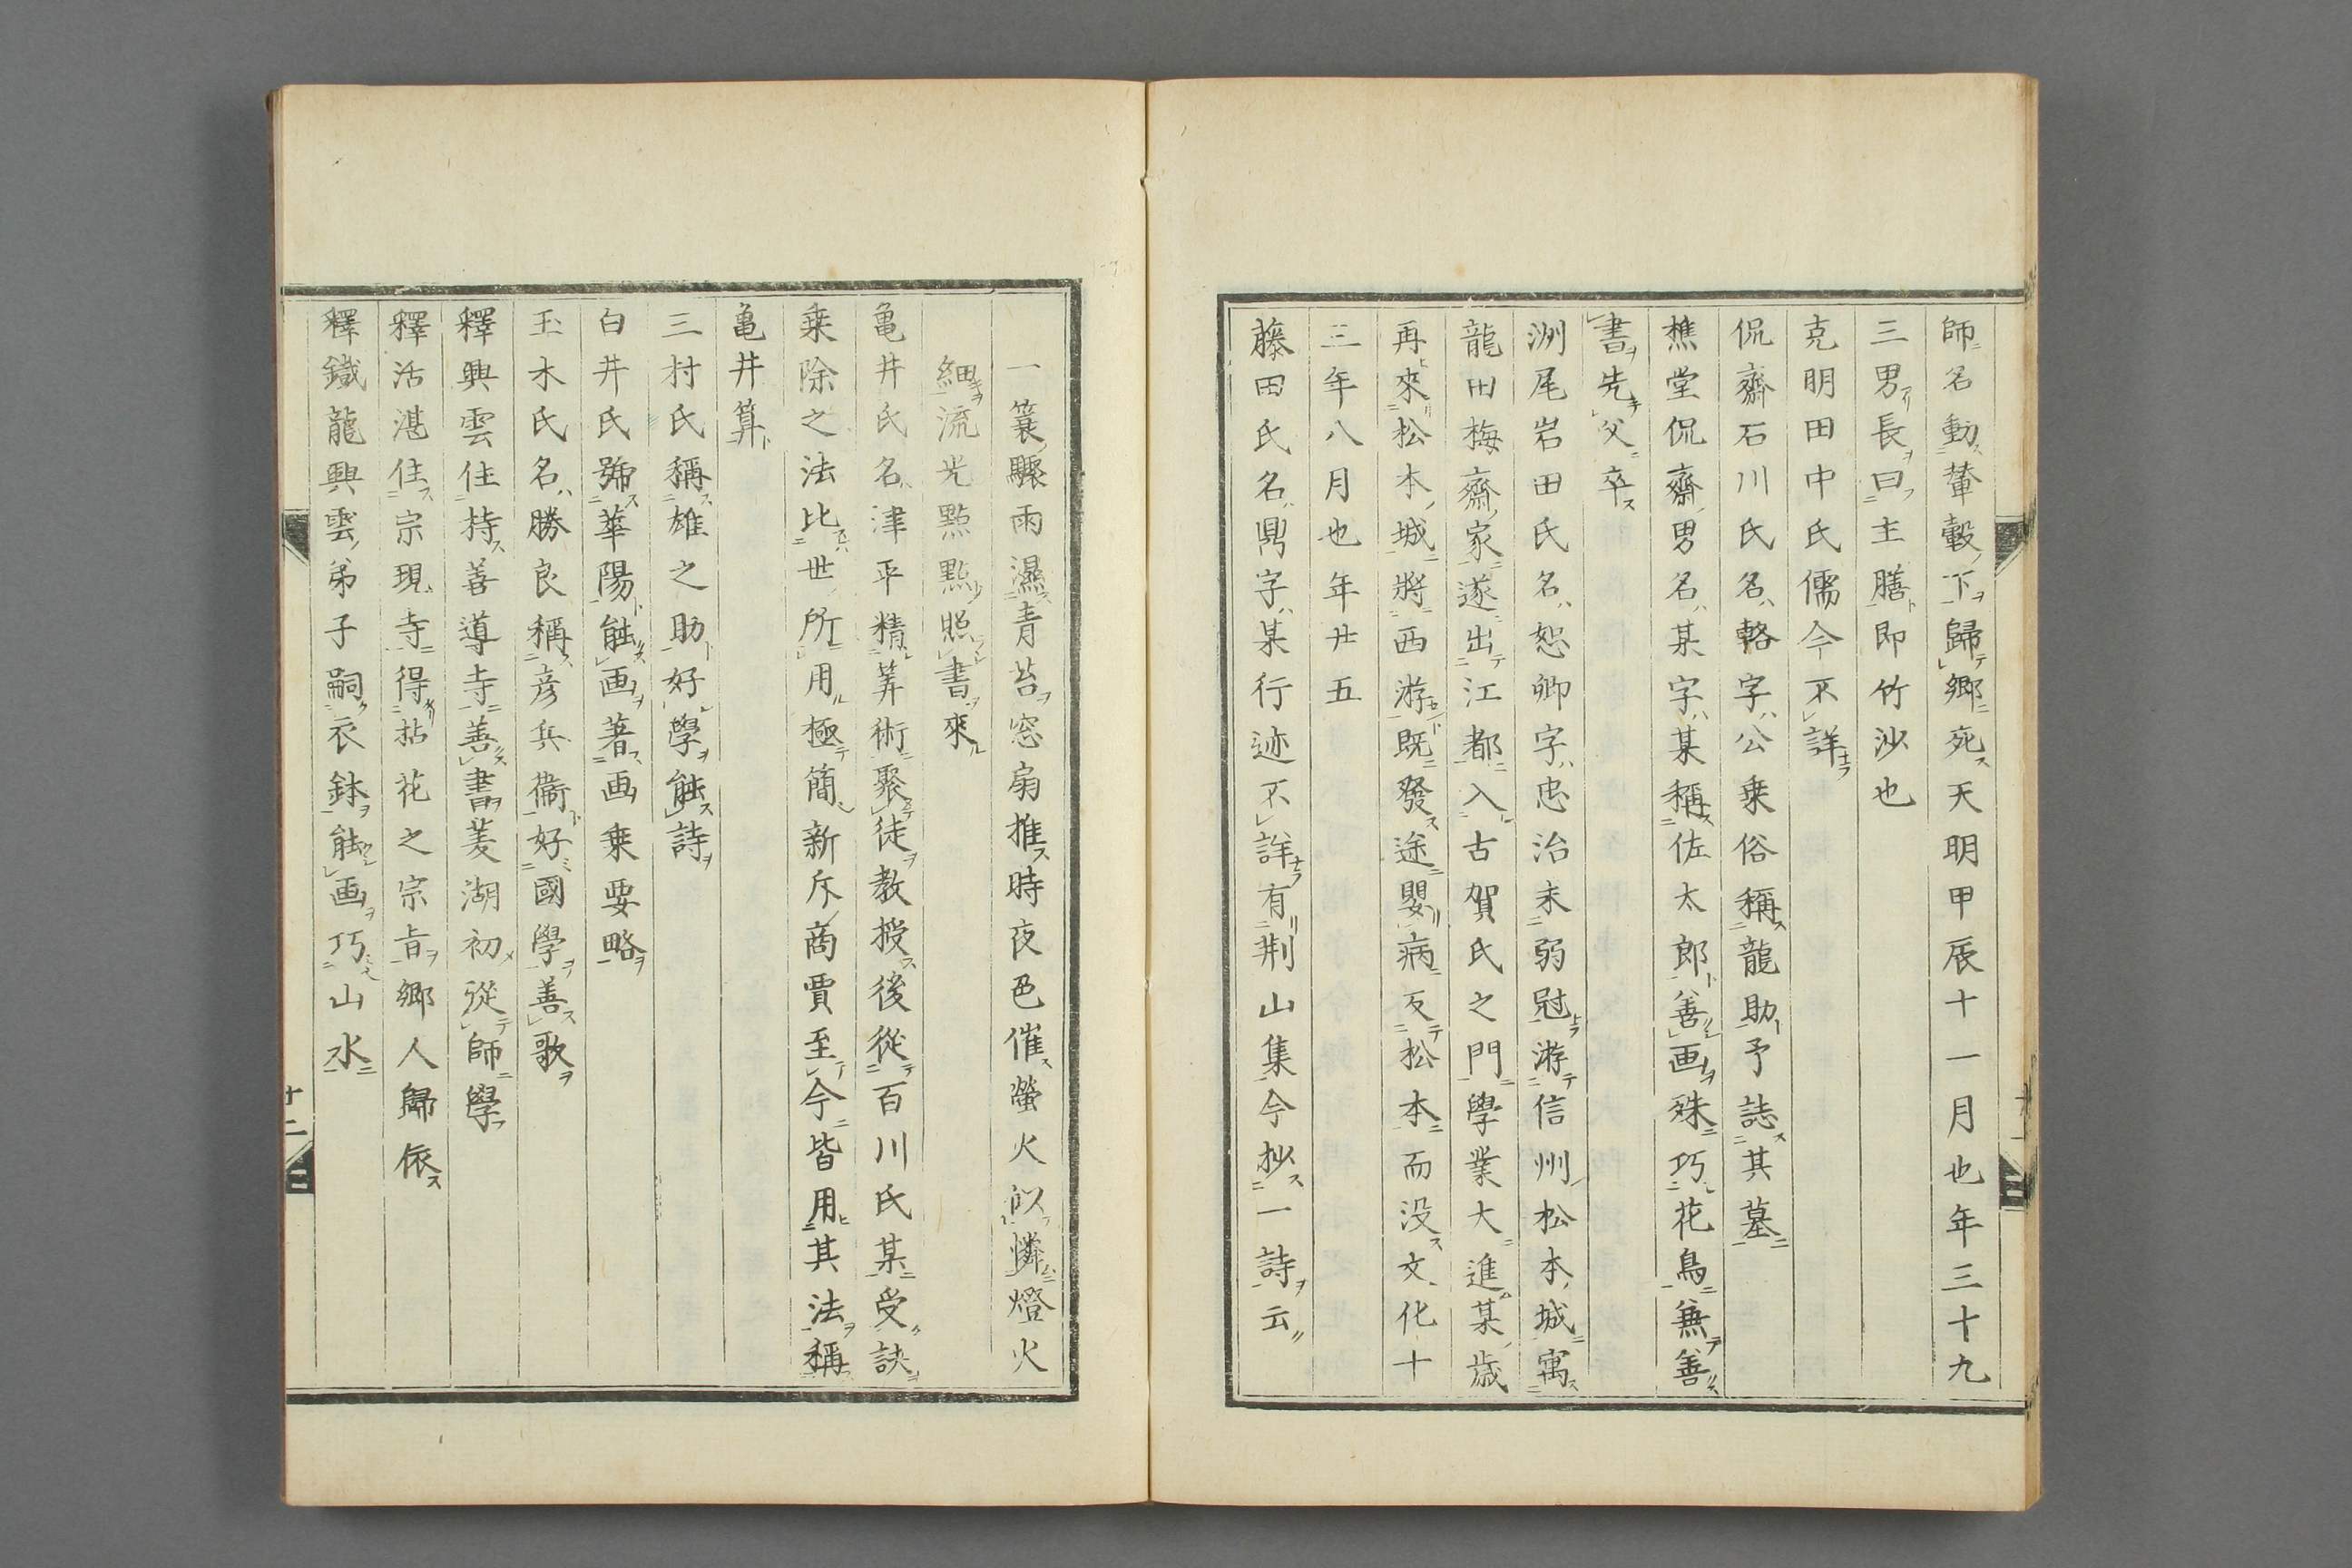 師名動輦轂下歸鄉死天明甲辰十一月也年三十九
三男長曰主膳即竹沙也
克明田中氏儒今不詳
侃齋石川氏名輅字公乗俗稱龍助予誌其墓
樵堂侃齋男名某字某稱佐太郎善画殊巧花鳥兼善
書先父卒
洲尾岩田氏名恕卿字忠治未弱冠游信州松本城寓
龍田梅齋家遂出江都入古賀氏之門學業大進某歲
再來松本城將西游既發途嬰病反松本而没文化十
三年八月也年廿五
藤田氏名鼎字某行迹不詳有荆山集今抄一詩云
一簑驟雨濕青苔窓扇推時夜色催螢火似憐燈火
細流光點點照書來
亀井氏名津平精筭術聚徒教授後從百川氏某受訣
乗除之法比世所用極簡新斥商賈至今皆用其法稱
亀井算
三村氏稱雄之助好學能詩
白井氏號華陽能画著画乗要略
玉木氏名勝良稱彦兵衞好國學善歌
釋興雲住持善導寺善書菱湖初從師學
釋活湛住宗現寺得拈花之宗旨鄉人歸依
釋鐵龍興雲弟子嗣衣鉢能画巧山水
十二